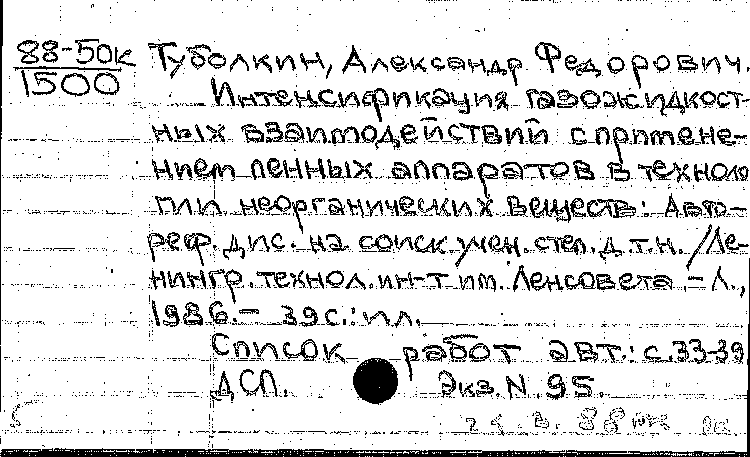 88-50к Туболкин, Александр Федорович.
1500
Интенсификация газожидкост-
ных взаимодействий с примене-
нием пенных аппаратов в техноло
гии неорганических веществ: Авто-
реф. дис. на соиск. учен. степ. д.т.н. /Ле-
нингр. технол. ин-т им. Ленсовета. - Л.,
1986. - 39с.: ил.
Список работ авт.: с.33-39
ДСП. Экз. N 95.